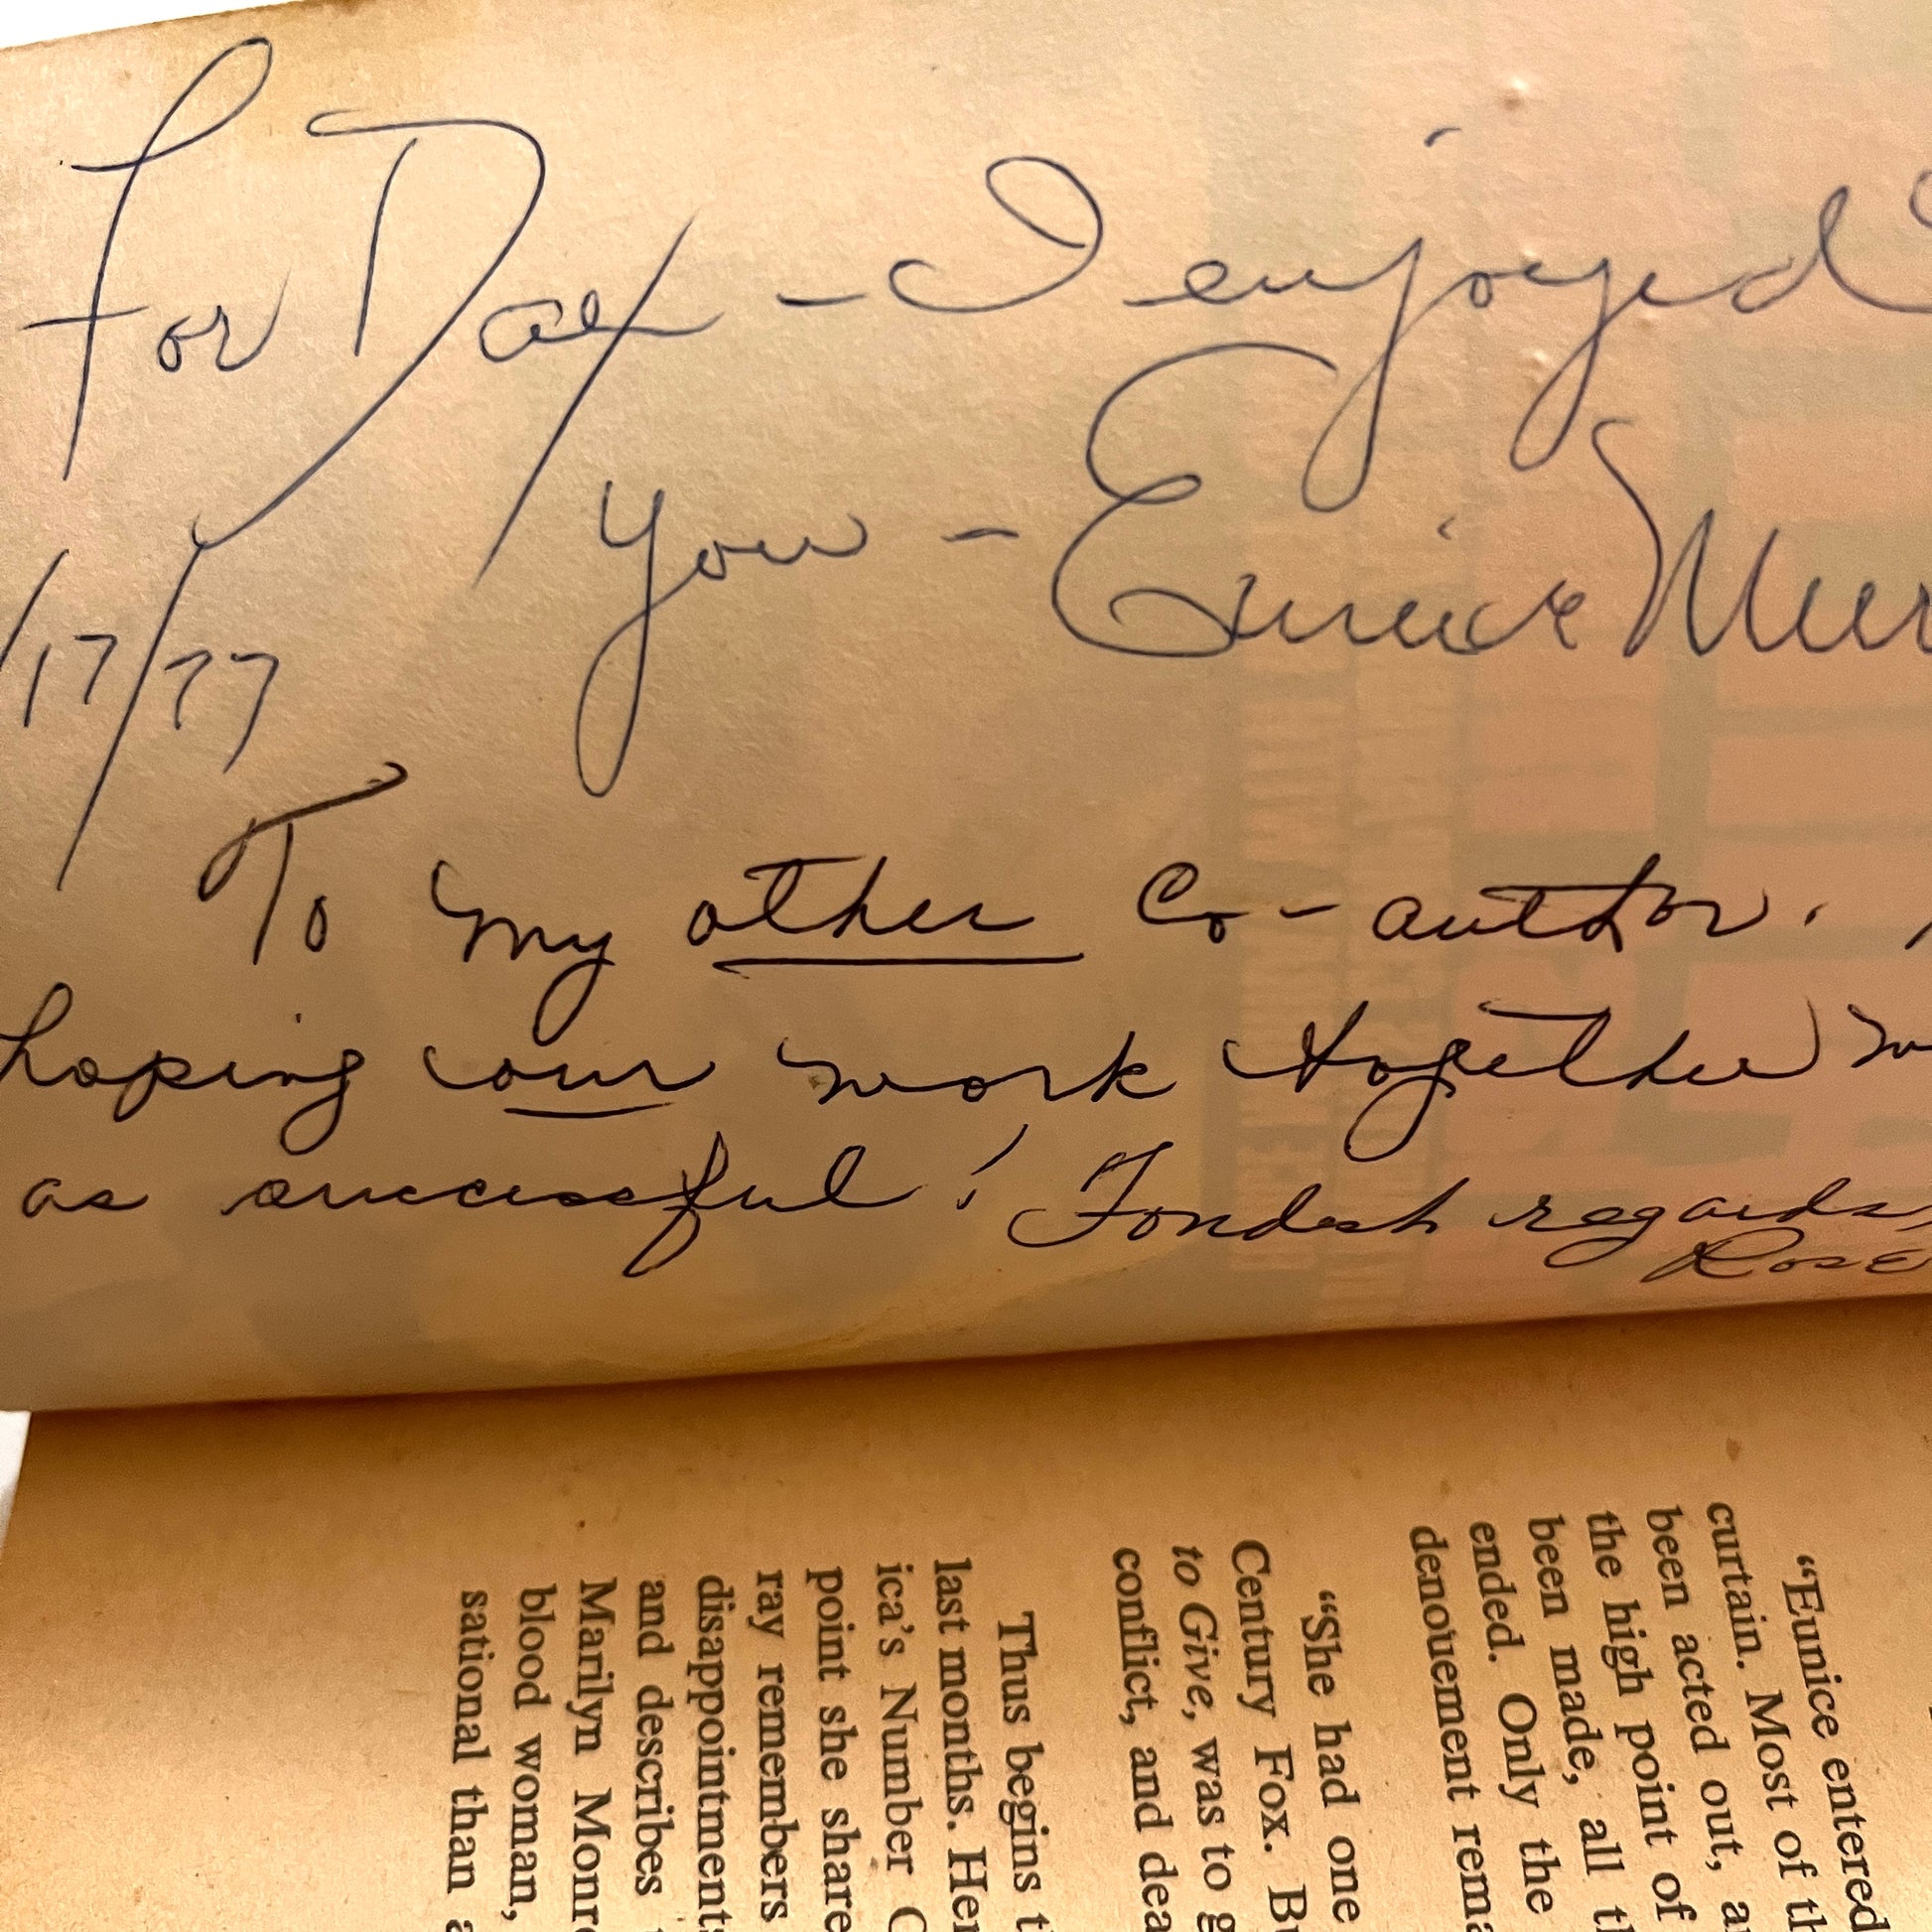 For Dae - I enjoyed
you - Eunice Murr
/17/77
To my other co-author.
hoping our work together
as successful! Fondest regards,
Rose
"Eunice entered
curtain. Most of th
been acted out, a
the high point of
been made, all th
ended. Only the
denouement rema
"She had one
Century Fox. Bu
to Give, was to g
conflict, and dea
Thus begins t
last months. Her
ica's Number O
point she share
ray remembers
disappointment
and describes t
Marilyn Monro
blood woman,
sational than a